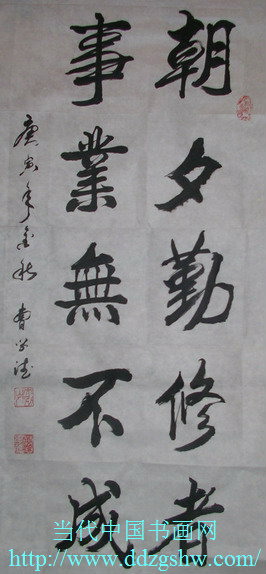 朝夕勤修者
事業無不成
庚寅年金秋 曹学德
当代中国书画网
http://www.ddzgshw.com/